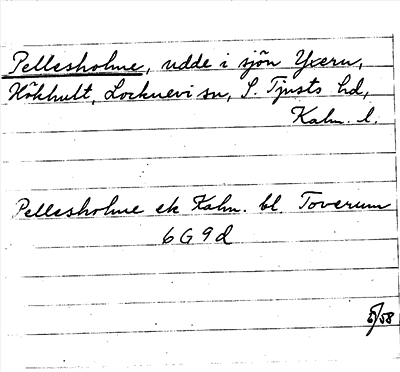 Pellesholme, udde i sjön Yxern,
Hökhult, Locknevi sn, S. Tjusts hd,
Kalm. l.
Pellesholme ek Kalm. bl. Toverum
6 G 9 d
5/58